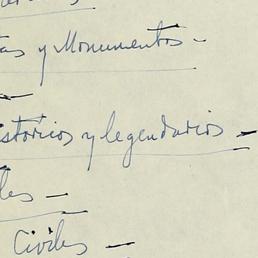 as y Monumentos -
istoricos y legendarios -
les -
Civiles -